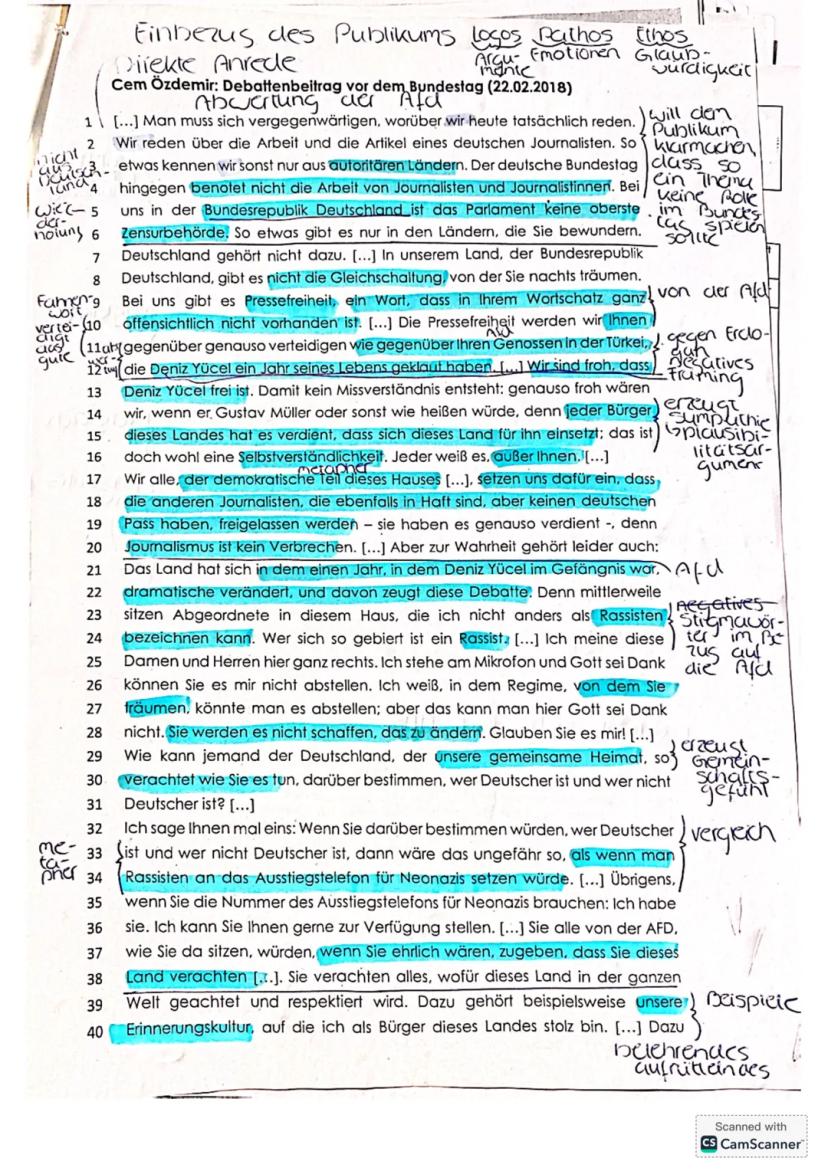 Einbezug des Publikums Logos Pathos Ethos
Direkte Anrede Argumente Emotionen Glaubwürdigkeit
Cem Özdemir: Debattenbeitrag vor dem Bundestag (22.02.2018)
Abwertung der Afd
1 [...] Man muss sich vergegenwärtigen, worüber wir heute tatsächlich reden.
2 Wir reden über die Arbeit und die Artikel eines deutschen Journalisten. So
3 etwas kennen wir sonst nur aus autoritären Ländern. Der deutsche Bundestag
4 hingegen benotet nicht die Arbeit von Journalisten und Journalistinnen. Bei
5 uns in der Bundesrepublik Deutschland ist das Parlament keine oberste
6 Zensurbehörde. So etwas gibt es nur in den Ländern, die Sie bewundern.
will dem
Publikum
klarmachen,
dass so
ein Thema
keine Rolle
im Bundes
tag spielen
sollte
nicht
aus
Deutsch-
land
Wie-
der-
holung
7 Deutschland gehört nicht dazu. [...] In unserem Land, der Bundesrepublik
8 Deutschland, gibt es nicht die Gleichschaltung, von der Sie nachts träumen.
9 Bei uns gibt es Pressefreiheit, ein Wort, dass in Ihrem Wortschatz ganz
10 offensichtlich nicht vorhanden ist. [...] Die Pressefreiheit werden wir Ihnen
11 gegenüber genauso verteidigen wie gegenüber Ihren Genossen in der Türkei,
12 die Deniz Yücel ein Jahr seines Lebens geklaut haben. [...] Wir sind froh, dass
von der Afd
Fahnen-
wort
vertei-
digt
das
gute
gegen Erdo-
gan
negatives
framing
13 Deniz Yücel frei ist. Damit kein Missverständnis entsteht: genauso froh wären
14 wir, wenn er Gustav Müller oder sonst wie heißen würde, denn jeder Bürger
15 dieses Landes hat es verdient, dass sich dieses Land für ihn einsetzt; das ist
16 doch wohl eine Selbstverständlichkeit. Jeder weiß es, außer Ihnen. [...]
erzeugt
sympathie
plausibi-
litätsar-
gument
metapher
17 Wir alle, der demokratische Teil dieses Hauses [...], setzen uns dafür ein, dass
18 die anderen Journalisten, die ebenfalls in Haft sind, aber keinen deutschen
19 Pass haben, freigelassen werden – sie haben es genauso verdient -, denn
20 Journalismus ist kein Verbrechen. [...] Aber zur Wahrheit gehört leider auch:
21 Das Land hat sich in dem einen Jahr, in dem Deniz Yücel im Gefängnis war,
22 dramatische verändert, und davon zeugt diese Debatte. Denn mittlerweile
23 sitzen Abgeordnete in diesem Haus, die ich nicht anders als Rassisten
24 bezeichnen kann. Wer sich so gebiert ist ein Rassist. [...] Ich meine diese
Afd
negatives
Stigmawör-
ter im Be-
zug auf
die Afd
25 Damen und Herren hier ganz rechts. Ich stehe am Mikrofon und Gott sei Dank
26 können Sie es mir nicht abstellen. Ich weiß, in dem Regime, von dem Sie
27 träumen, könnte man es abstellen; aber das kann man hier Gott sei Dank
28 nicht. Sie werden es nicht schaffen, das zu ändern. Glauben Sie es mir! [...]
29 Wie kann jemand der Deutschland, der unsere gemeinsame Heimat, so
30 verachtet wie Sie es tun, darüber bestimmen, wer Deutscher ist und wer nicht
31 Deutscher ist? [...]
erzeugt
Gemein-
schafts-
gefühl
32 Ich sage Ihnen mal eins: Wenn Sie darüber bestimmen würden, wer Deutscher
33 ist und wer nicht Deutscher ist, dann wäre das ungefähr so, als wenn man
34 Rassisten an das Ausstiegstelefon für Neonazis setzen würde. [...] Übrigens,
vergleich
me-
ta-
pher
35 wenn Sie die Nummer des Ausstiegstelefons für Neonazis brauchen: Ich habe
36 sie. Ich kann Sie Ihnen gerne zur Verfügung stellen. [...] Sie alle von der AFD,
37 wie Sie da sitzen, würden, wenn Sie ehrlich wären, zugeben, dass Sie dieses
38 Land verachten [...]. Sie verachten alles, wofür dieses Land in der ganzen
39 Welt geachtet und respektiert wird. Dazu gehört beispielsweise unsere
40 Erinnerungskultur, auf die ich als Bürger dieses Landes stolz bin. [...] Dazu
Beispiele
belehrendes
aufrüttelndes
Scanned with
CS CamScanner